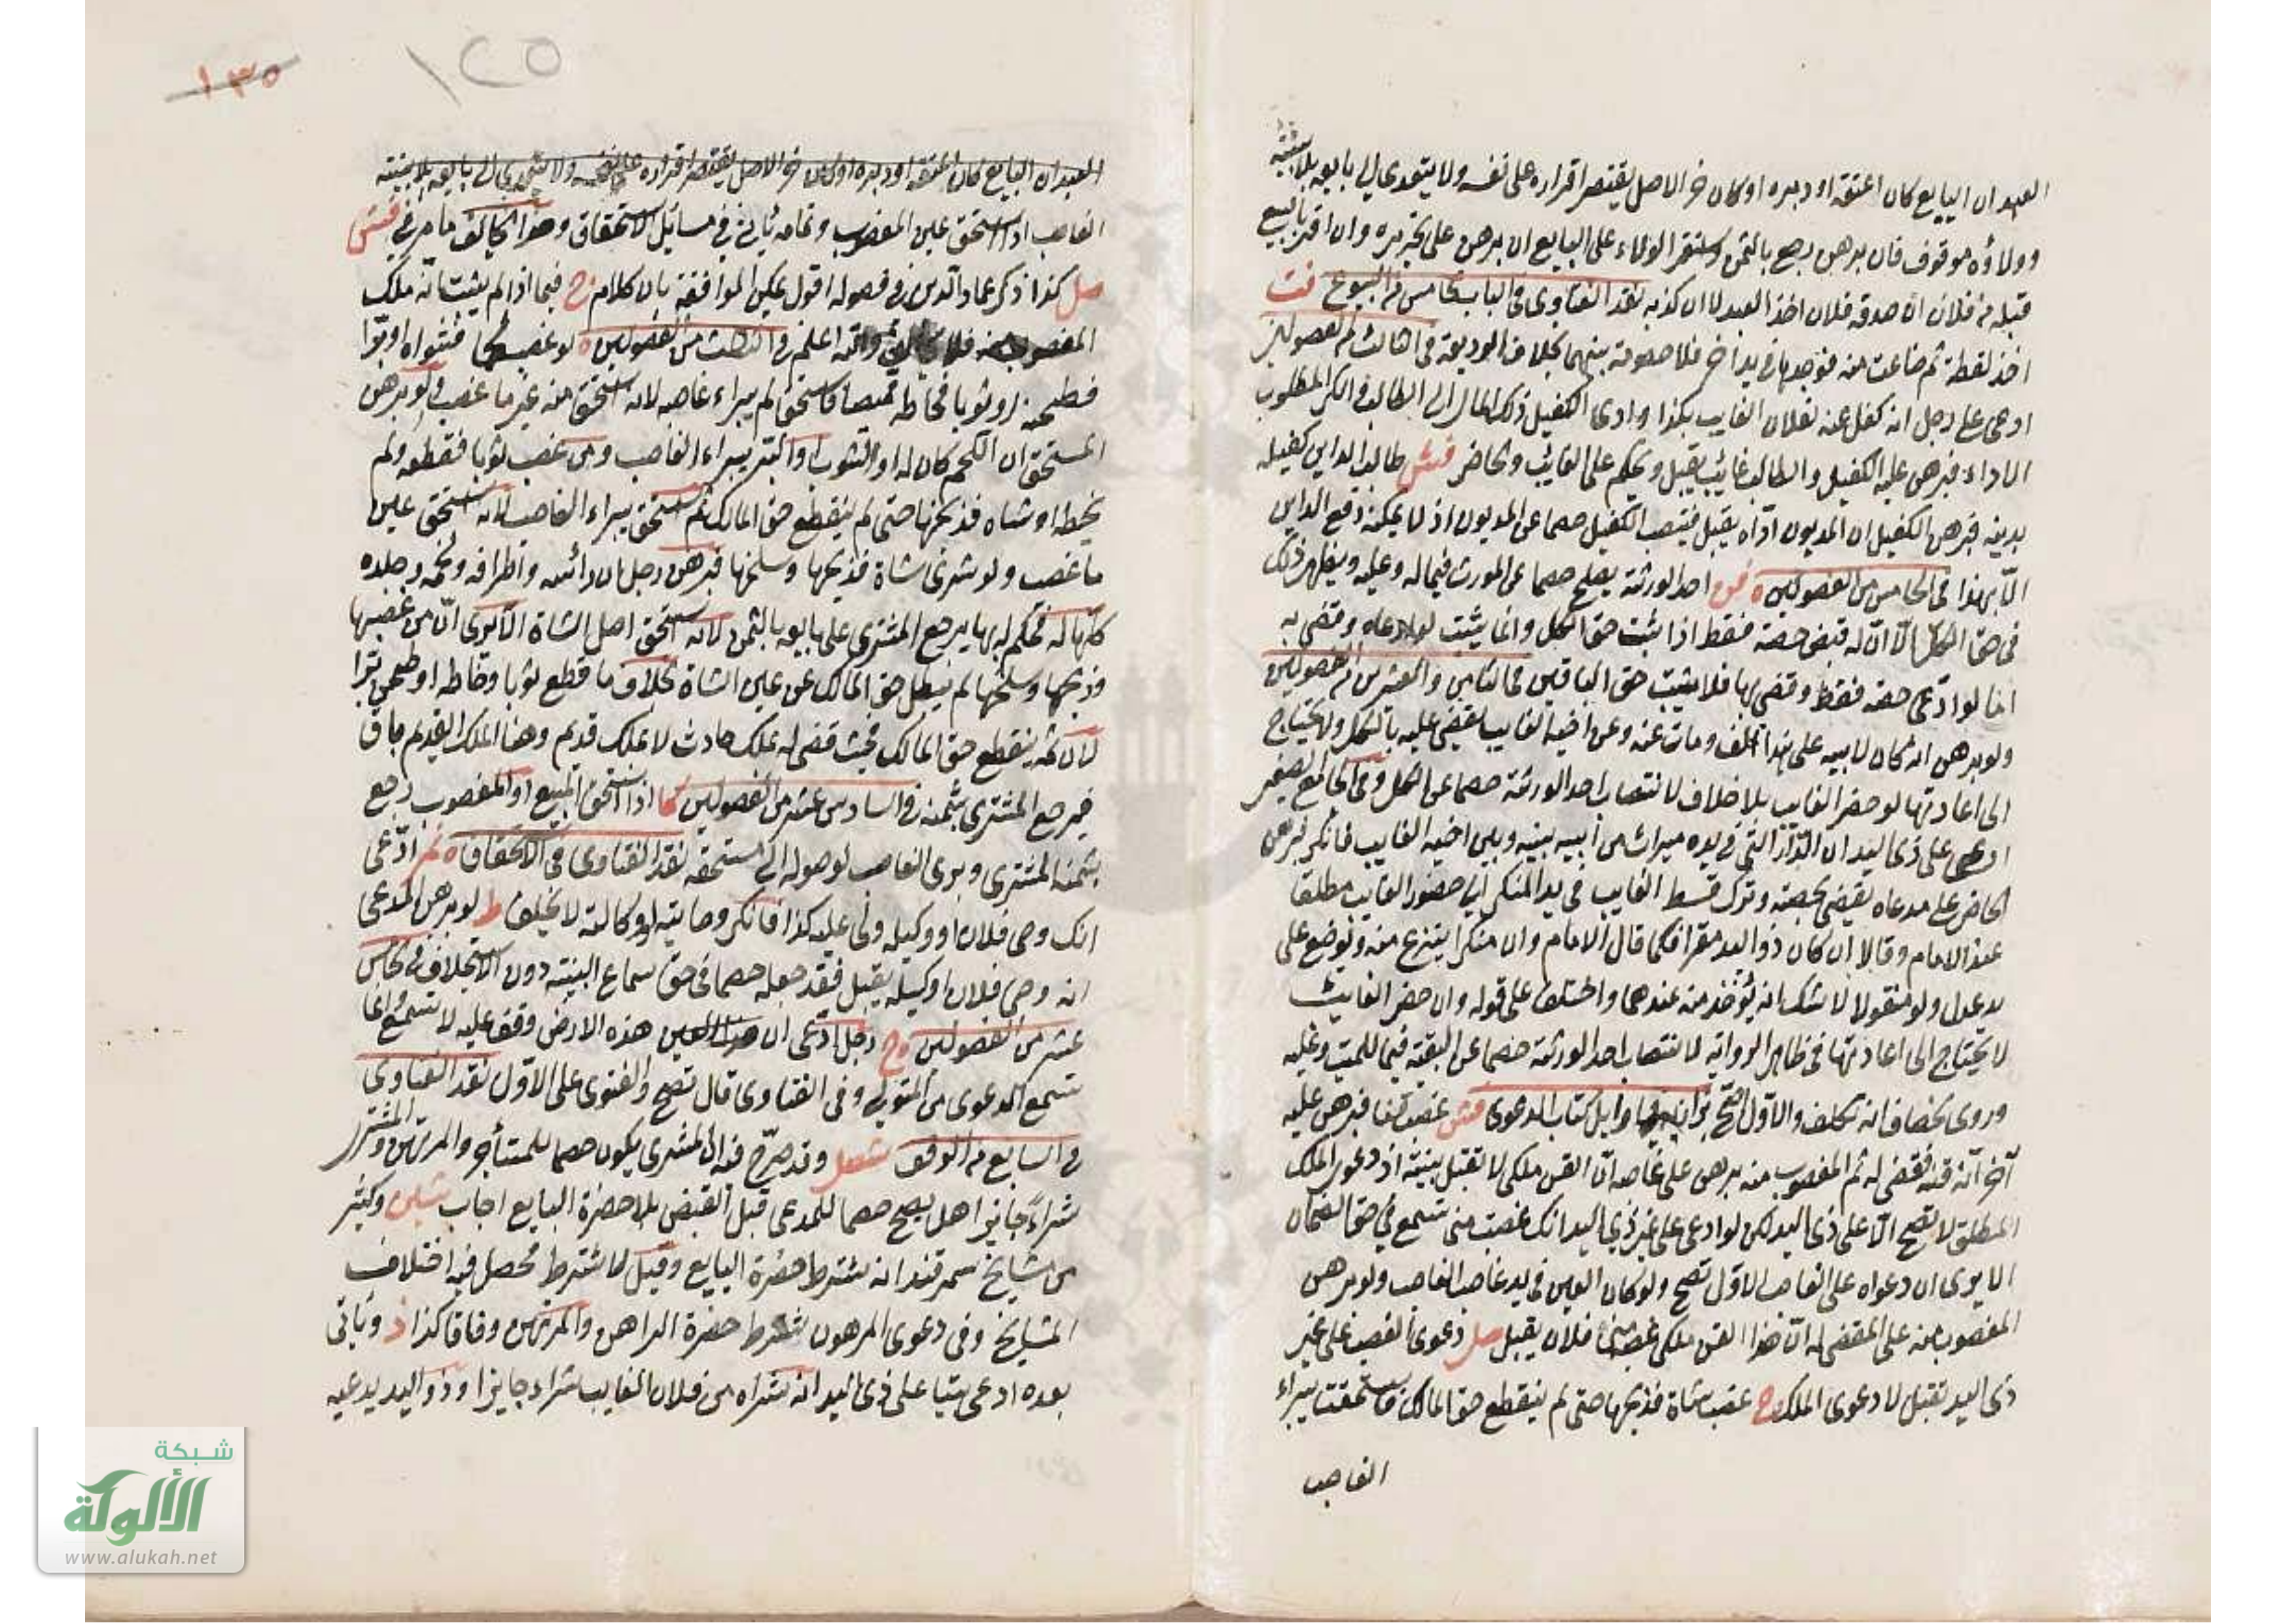 العبد ان البايع كان اعتقه او دبره او كان حر الاصل يقتصر اقراره على نفسه ولا يتعدى الى بايعه بلا بينة
وولاؤه موقوف فان برهن رجع بالثمن ويستقر الولاء على البايع ان برهن على تحريره وان اقر بالبيع
قبله من فلان ان صدقه فلان اخذ العبد لا ان كذبه نقد الفتاوى فى الباب الخامس من البيوع فت
اخذ لقطة ثم ضاعت منه فوجدها فى يد اخر فلا خصومة بينهما بخلاف الوديعة فى الثالث من الفصولين
ادعى على رجل انه كفل عنه لفلان الغايب بكذا وادعى الكفيل ذلك المال الى الطالب وانكر المطلوب
الاداء فبرهن عليه الكفيل والطالب غائب يقبل ويحكم على الغائب والحاضر فش طالب الداين كفيله
بدينه فبرهن الكفيل ان المديون اداه يقبل فينتصب الكفيل خصما عن المديون اذ لا يمكنه دفع الداين
الا بهذا فى الخامس من الفصولين احد الورثة يصلح خصما عن المورث فيما له وعليه ويظهر ذلك
فى حق الكل الا ان له قبض حصته فقط اذا ثبت حق الكل وانما يثبت لو ادعاه وقضى به
اما لو ادعى حصته فقط وقضى بها فلا يثبت حق الباقين فى الثامن والعشرين من الفصولين
ولو برهن انه كان لابيه على هذا الف ومات عنه وعن اخيه الغايب يقضى عليه بالكل ولا يحتاج
الى اعادتها لو حضر الغايب بلا خلاف لانتصاب احد الورثة خصما عن الكل وفى الجامع الصغير
ادعى على ذى اليد ان الدار التى فى يده ميراث من ابيه بينه وبين اخيه الغايب فانكر فبرهن
الحاضر على مدعاه يقضى بحصته وترك قسط الغايب فى يد المنكر الى حضور الغايب مطلقا
عند الامام وقالا ان كان ذو اليد مقرا فكما قال الامام وان منكرا ينتزع منه ويوضع على
يد عدل ولو منقولا لا شك انه يؤخذ منه عندهما واختلف على قوله وان حضر الغايب
لا يحتاج الى اعادتها فى ظاهر الرواية لانتصاب احد الورثة خصما عن البقية فيما للميت وعليه
وروى الخصاف انه تكلف والاول اصح بزازيه فى اوايل كتاب الدعوى فش غصب قنا فبرهن عليه
آخر انه قنه فقضى له ثم المغصوب منه برهن على غاصبه ان القن ملكى لا تقبل بينته اذ دعوى الملك
المطلق لا تصح الا على ذى اليد لكن لو ادعى على غير ذى اليد انك غصبت منى تسمع فى حق الضمان
الا يرى ان دعواه على الغاصب الاول تصح ولو كان العين فى يد غاصب الغاصب ولو برهن
المغصوب منه على المقضى له ان هذا القن ملكى غصبه منى فلان يقبل صل دعوى الغصب على غير
ذى اليد تقبل لا دعوى الملك ج غصب شاة فذبحها حتى لم ينقطع حق المالك فاستحقت يبراء
الغاصب
١٣٥
١٢٥
العبد ان البايع كان اعتقه او دبره او كان حر الاصل يقتصر اقراره على نفسه ولا يتعدى الى بايعه بلا بينة
الغاصب اذا استحق عين المغصوب وتمامه يأتى فى مسائل الاستحقاق وهذا يخالف ما مر فى فش
صل كذا ذكر عماد الدين فى فصوله اقول يمكن الموافقة بان كلام ج فيما اذا لم يثبت انه ملك
المغصوب منه فلا والله اعلم فى الثالث من الفصولين لو غصب لحما فشواه او برا
فطحنه او ثوبا فخاطه قميصا فاستحق لم يبراء غاصبه لانه استحق منه غير ما غصب ولو برهن
المستحق ان اللحم كان له او الثوب او البر يبراء الغاصب ومن غصب ثوبا فقطعه ولم
يخطه او شاه فذبحها حتى لم ينقطع حق المالك ثم استحق يبراء الغاصب لانه استحق عين
ما غصب ولو شرى شاة فذبحها وسلخها فبرهن رجل ان رائسه واطرافه ولحمه وجلده
كلها له فحكم له بها يرجع المشترى على بايعه بالثمن لانه استحق اصل الشاة الا يرى ان من غصبها
وذبحها وسلخها لم يبطل حق المالك عن عين الشاة بخلاف ما قطع ثوبا وخاطه او طحن برا
لان ثمه ينقطع حق المالك فحيث قضى له بملك حادث لا بملك قديم وهنا الملك القديم باق
فيرجع المشترى بثمنه فى السادس عشر من الفصولين كا اذا استحق المبيع او المغصوب رجع
بثمنه المشترى وبرى الغاصب لوصوله الى مستحقه نقد الفتاوى فى الاستحقاق ادعى
انك وصى فلان او وكيله ولى عليه كذا فانكر وصايته او وكالته لا يحلف ط لو برهن المدعى
انه وصى فلان او وكيله يقبل فقد جعله خصما فى حق سماع البينة دون الاستحلاف فى الخامس
عشر من الفصولين ج رجل ادعى ان هذه الارض وقف عليه لا تسمع وانما
تسمع الدعوى من المتولى وفى الفتاوى قال تصح والفتوى على الاول نقد الفتاوى
فى السابع من الوقف شعل وقد صرح فيه ان المشترى يكون خصما للمستأجر والمرتهن والمشترى
شراء جايزا هل يصح خصما للمدعى قبل القبض بلا حضرة البايع اجاب شلبى وكثير
من مشايخ سمرقند انه يشترط حضرة البايع وقيل لا يشترط فحصل فيه اختلاف
المشايخ وفى دعوى المرهون شرط حضرة الراهن والمرتهن وفاقا كذا ذ ويأتى
بعده ادعى شيا على ذى اليد انه شراه من فلان الغايب شراء جايزا وذو اليد يدعيه
شبكة
الألوكة
www.alukah.net